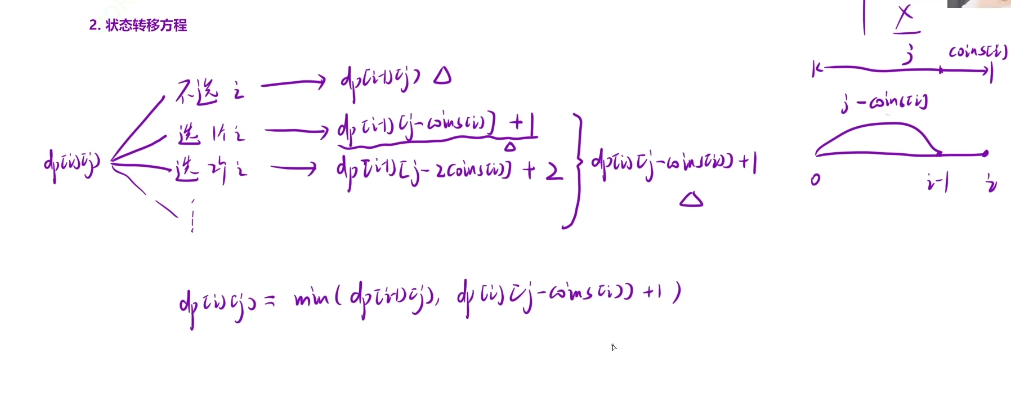 2. 状态转移方程
x
j
coins[i]
j-coins[i]
0 i-1 i
dp[i][j]
不选 i → dp[i-1][j] △
选 1个 i → dp[i-1][j-coins[i]] + 1 △
选 2个 i → dp[i-1][j-2coins[i]] + 2
dp[i][j-coins[i]]+1
△
dp[i][j] = min(dp[i-1][j], dp[i][j-coins[i]]+1)